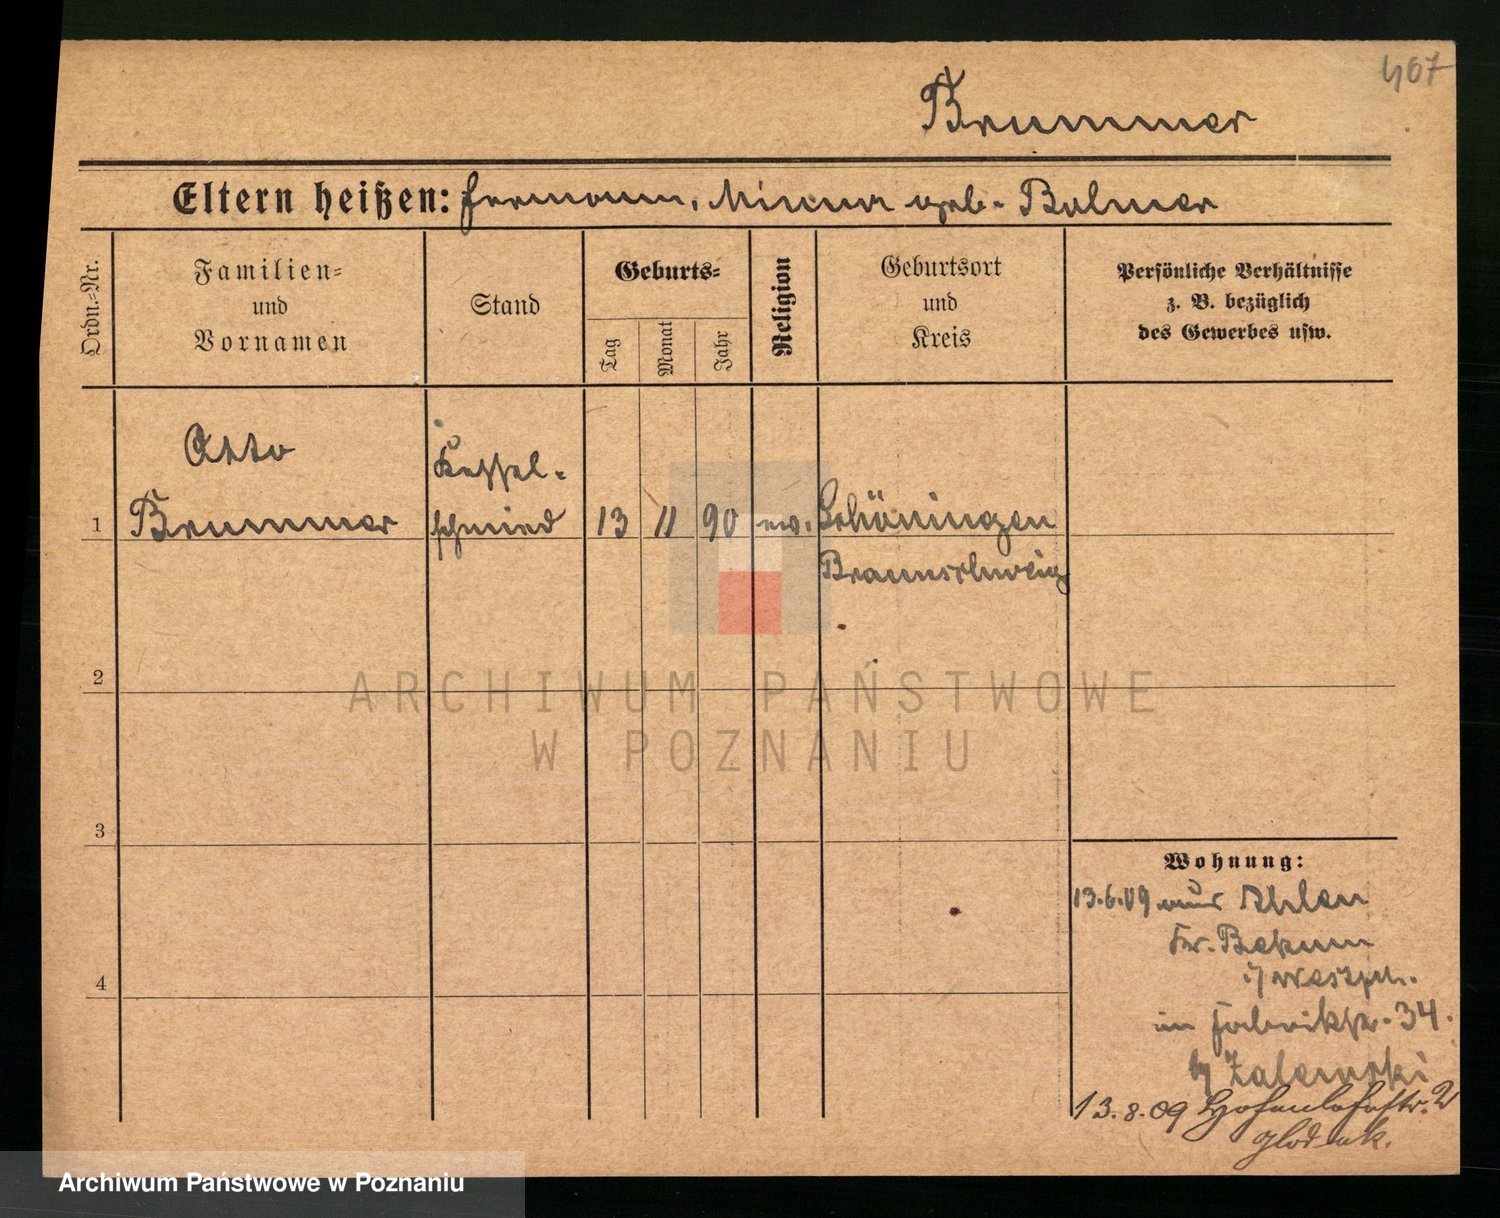 407
Brummer
Eltern heißen: Hermann, Minna geb. Bolmer
Ordn.=Nr.
Familien=
und
Vornamen
Stand
Geburts=
Tag
Monat
Jahr
Religion
Geburtsort
und
Kreis
Persönliche Verhältnisse
z. B. bezüglich
des Gewerbes usw.
1
Otto
Brummer
Kessel-
schmied
13
11
90
ev.
Schöningen
Braunschweig
2
3
4
Wohnung:
13.6.09 aus Ahlen
Kr. Bekum
i/ Westph.
in Fabrikstr. 34.
by Zalewski
13.8.09 Hohenlohestr. 2
ARCHIWUM PAŃSTWOWE
W POZNANIU
Archiwum Państwowe w Poznaniu